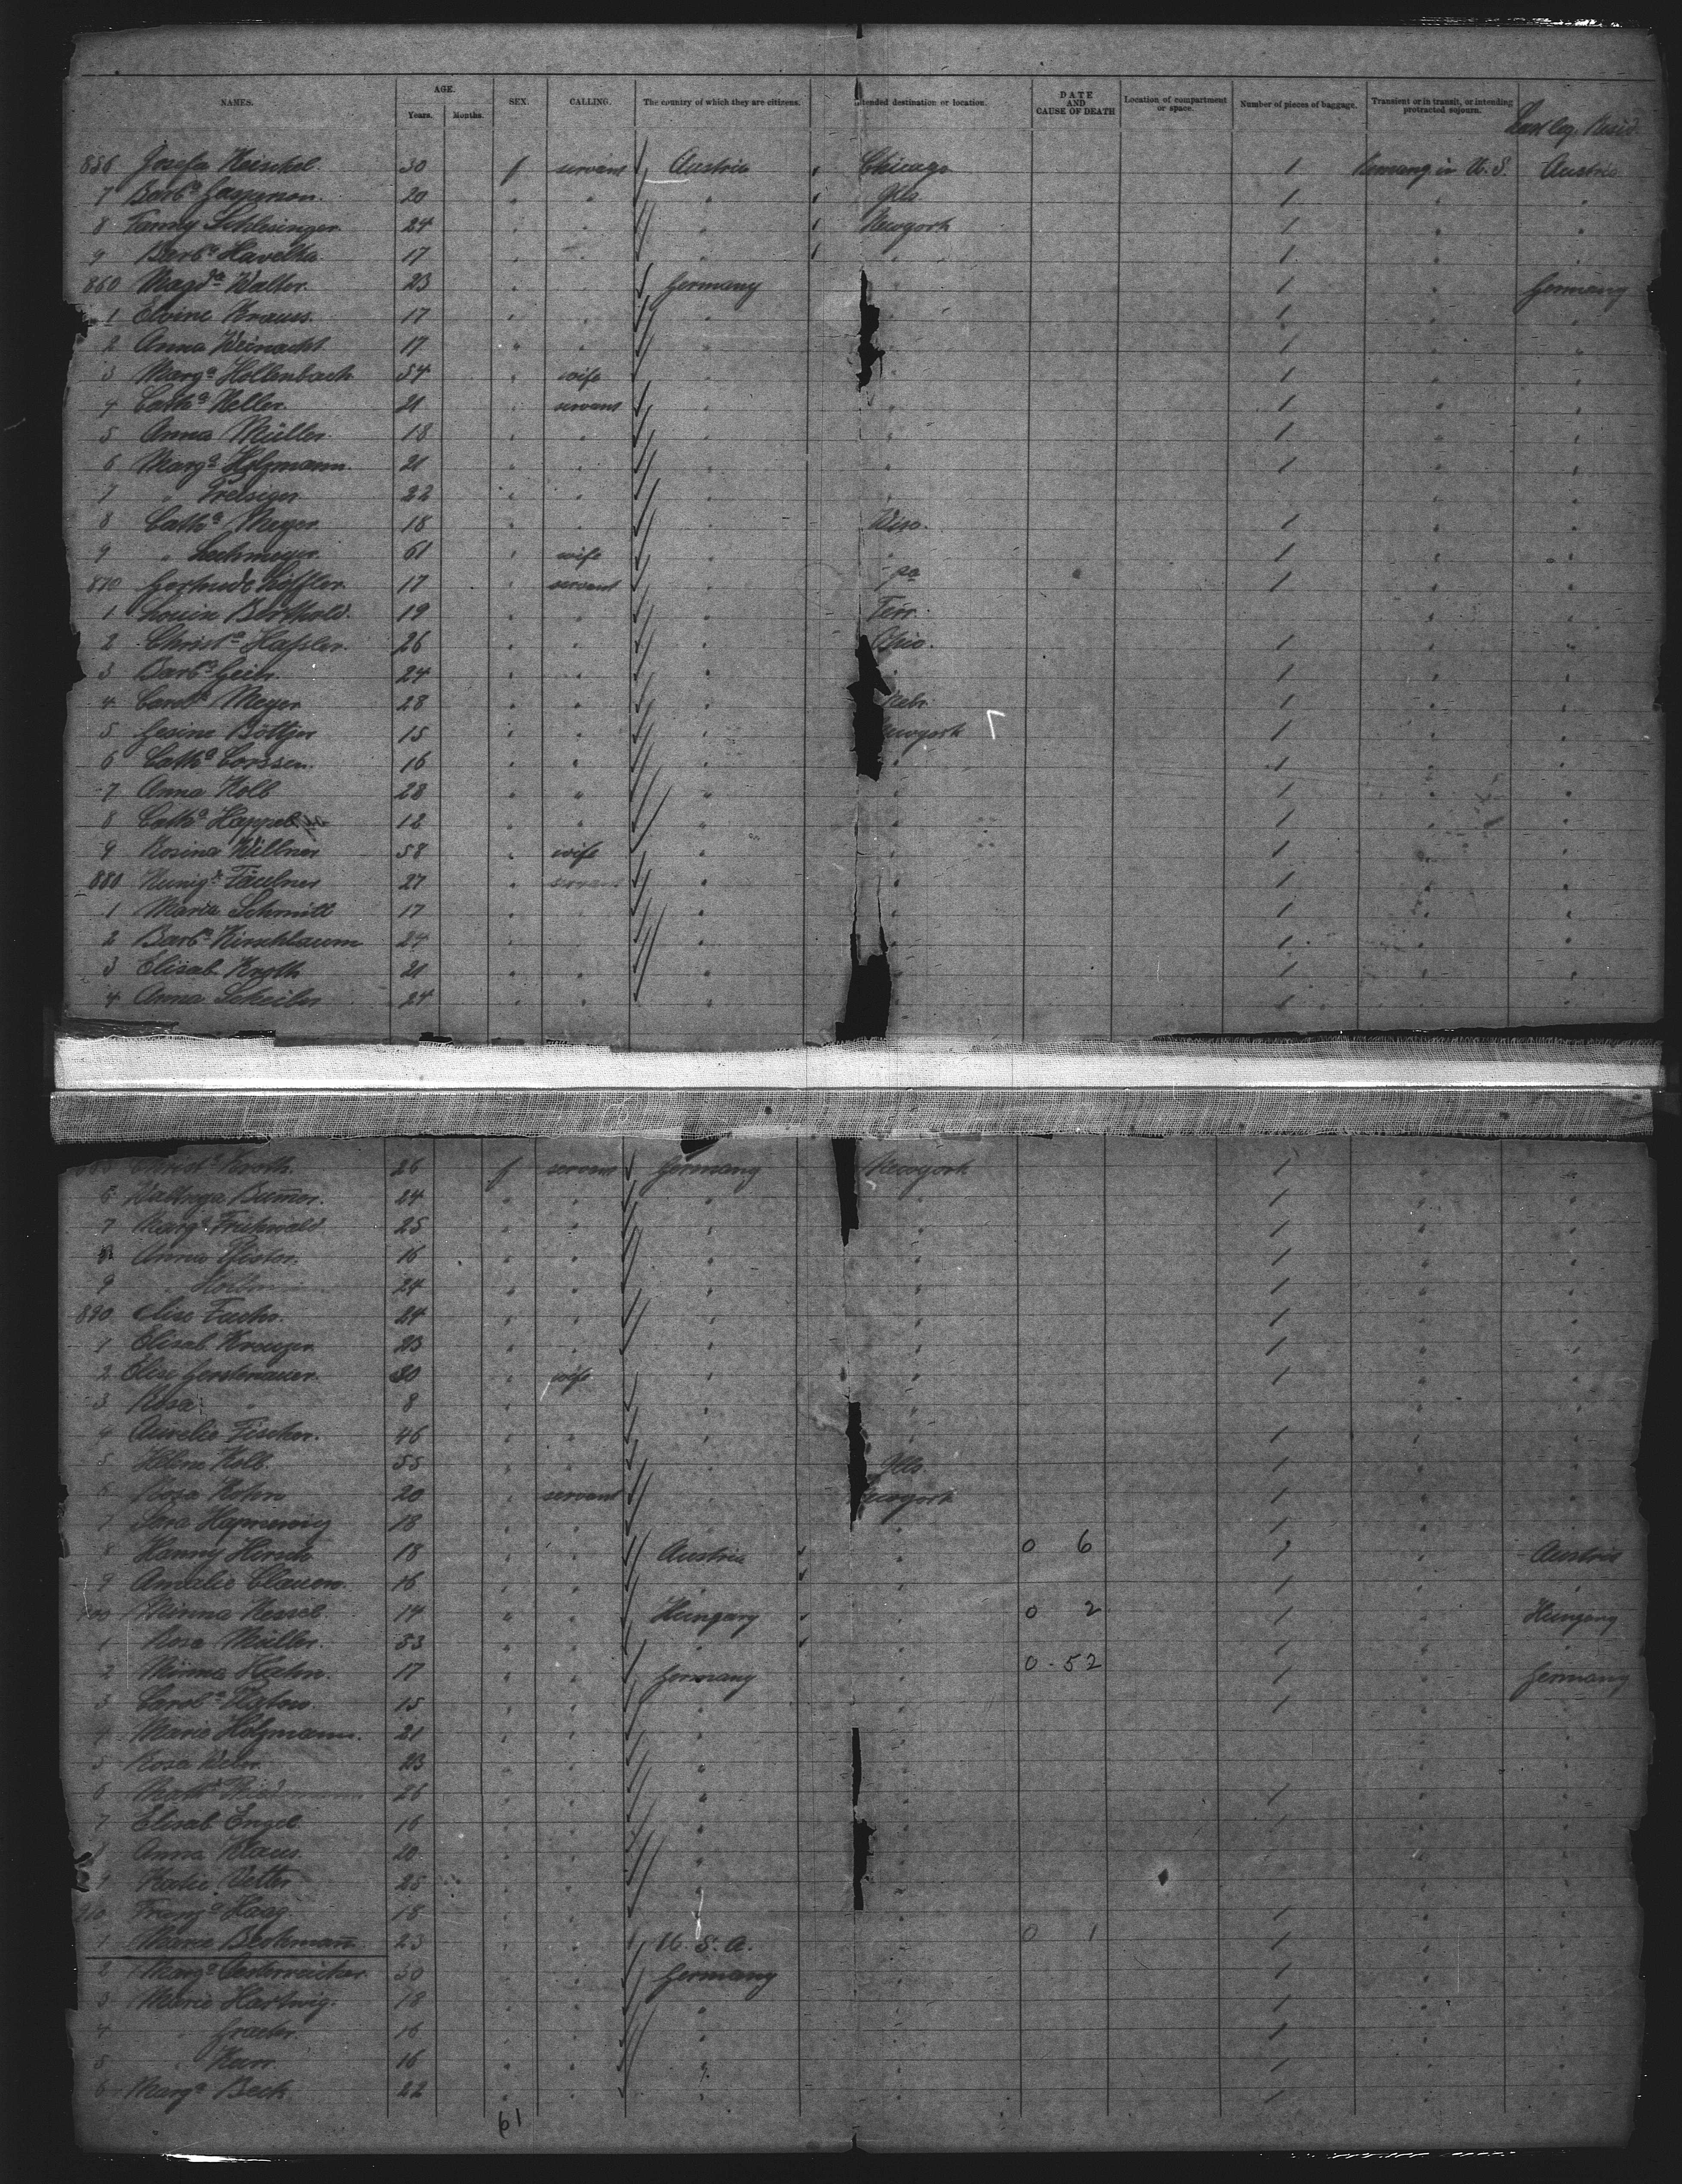 NAMES. AGE. Years. Months. SEX. CALLING. The country of which they are citizens. Intended destination or location. DATE AND CAUSE OF DEATH Location of compartment or space. Number of pieces of baggage. Transient or in transit, or intending protracted sojourn. Last leg. Resid.
856 Josefa Heischel. 30 f servant Austria Chicago 1 Remang in U.S. Austria
7 Barba 20 " " " Ills 1 " "
8 Fanny Schlesinger 24 " " " Newyork 1 " "
9 Barba Havelka 17 " " " " 1 " "
860 Magda Walter. 23 " " Germany " 1 " Germany
1 Elvine Krauss. 17 " " " " 1 " "
2 Anna Weinacht 17 " " " " 1 " "
3 Marga Hollenbach 54 " wife " " 1 " "
4 Catha Heller. 21 " servant " " 1 " "
5 Anna Müller. 18 " " " " 1 " "
6 Marga Holzmann. 21 " " " " 1 " "
7 " Preisiger 22 " " " " " "
8 Catha Meyer 18 " " " Wisc. 1 " "
9 " Lechmeyer. 61 " wife " " 1 " "
870 Gertrude Löffler. 17 " servant " pa 1 " "
1 Louise Berthold. 19 " " " Terr. " "
2 Christa Hassler. 26 " " " Ohio. 1 " "
3 Barba Geib. 24 " " " " 1 " "
4 Carola Meyer 28 " " " Nebr. 1 " "
5 Gesine Böttjer 15 " " " Newyork 1 " "
6 Catha Corssen. 16 " " " " 1 " "
7 Anna Kolb 28 " " " " 1 " "
8 Catha Happel 12 " " " " 1 " "
9 Rosina Willner 58 " wife " " 1 " "
880 Kunigd Täubner 27 " servant " " 1 " "
1 Maria Schmitt 17 " " " " 1 " "
2 Barba Kirschbaum 24 " " " " 1 " "
3 Elisab Kroth 21 " " " " 1 " "
4 Anna Scheiber 24 " " " " 1 " "
Christa Kroth. 26 f servant Germany Newyork 1 " "
6 Walburga 24 " " " " 1 " "
7 Marga Frühwald 25 " " " " 1 " "
8 Anna Pfister. 16 " " " " 1 " "
9 " 24 " " " " " "
890 Elise Fuchs. 24 " " " " 1 " "
1 Elisab Krueger 23 " " " " 1 " "
2 Elise Gerstenauer. 30 " wife " " 1 " "
3 Rosa " 8 " " " " " "
4 Aurelie Fischer. 46 " " " " 1 " "
5 Helene Kolb. 55 " " " Ills. 1 " "
6 Rosa Kohn 20 " servant " Newyork 1 " "
7 Sara 18 " " " " 1 " "
8 Hanny Hirsch 18 " " Austria " 0 6 1 " Austria
9 Amalie 16 " " " " 1 " "
900 Minna Hessel 14 " " Hungary " 0 2 1 " Hungary
1 Rosa Müller. 53 " " " " 1 " "
2 Minna Hahn. 17 " " Germany " 0-52 1 " Germany
3 Carola Hahn. 15 " " " " 1 " "
4 Marie Holzmann. 21 " " " " " "
5 Rosa Weber 23 " " " " " "
6 26 " " " " 1 " "
7 Elisab Engel 16 " " " " 1 " "
8 Anna Klaus. 20 " " " " " "
9 Katie Vetter 25 " " " " " "
910 Franza Haag 18 " " " " 1 " "
1 Marie Beckmann 23 " " U.S.A. " 0 1 1 " "
2 Marga Oesterreicher 30 " " Germany " 1 " "
3 Marie Hartwig. 18 " " " " 1 " "
4 " Graeter. 16 " " " " 1 " "
5 " Kurr. 16 " " " " 1 " "
6 Marga Beck 22 " " " " 1 " "
61